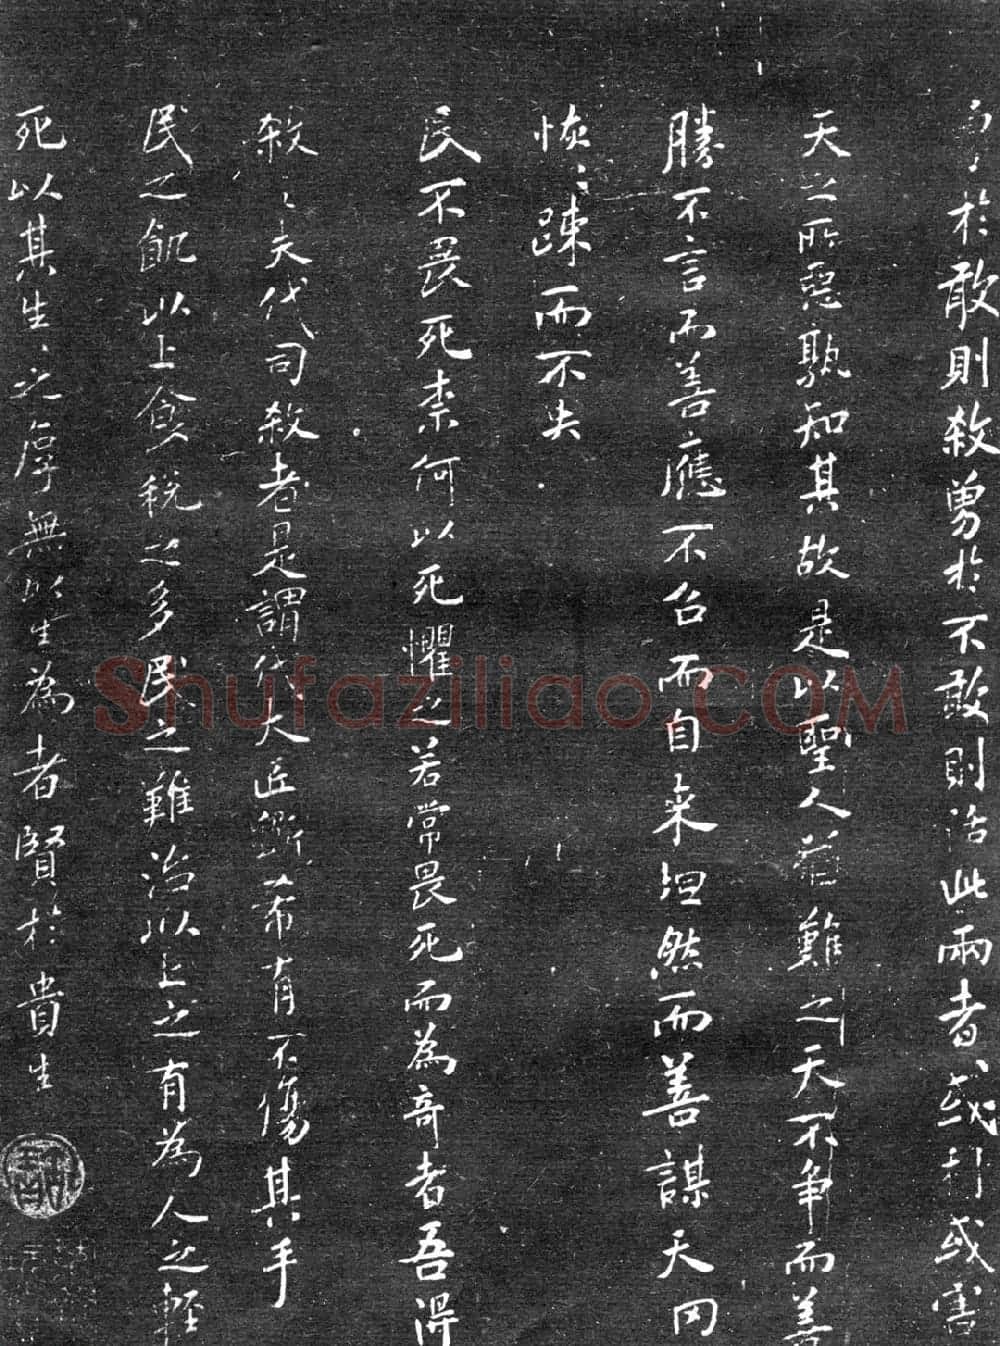 勇於敢則殺勇於不敢則活此兩者或利或害
天之所惡孰知其故是以聖人猶難之天不争而善
勝不言而善應不台而自来坦然而善謀天罔
恢〻踈而不失
民不畏死柰何以死懼之若常畏死而為奇者吾得
殺之夫代司殺者是謂代大匠斵希有不傷其手
民之飢以上食税之多民之難治以上之有為人之輕
死以其生〻之厚無以生為者賢於貴生
Shufaziliao.COM